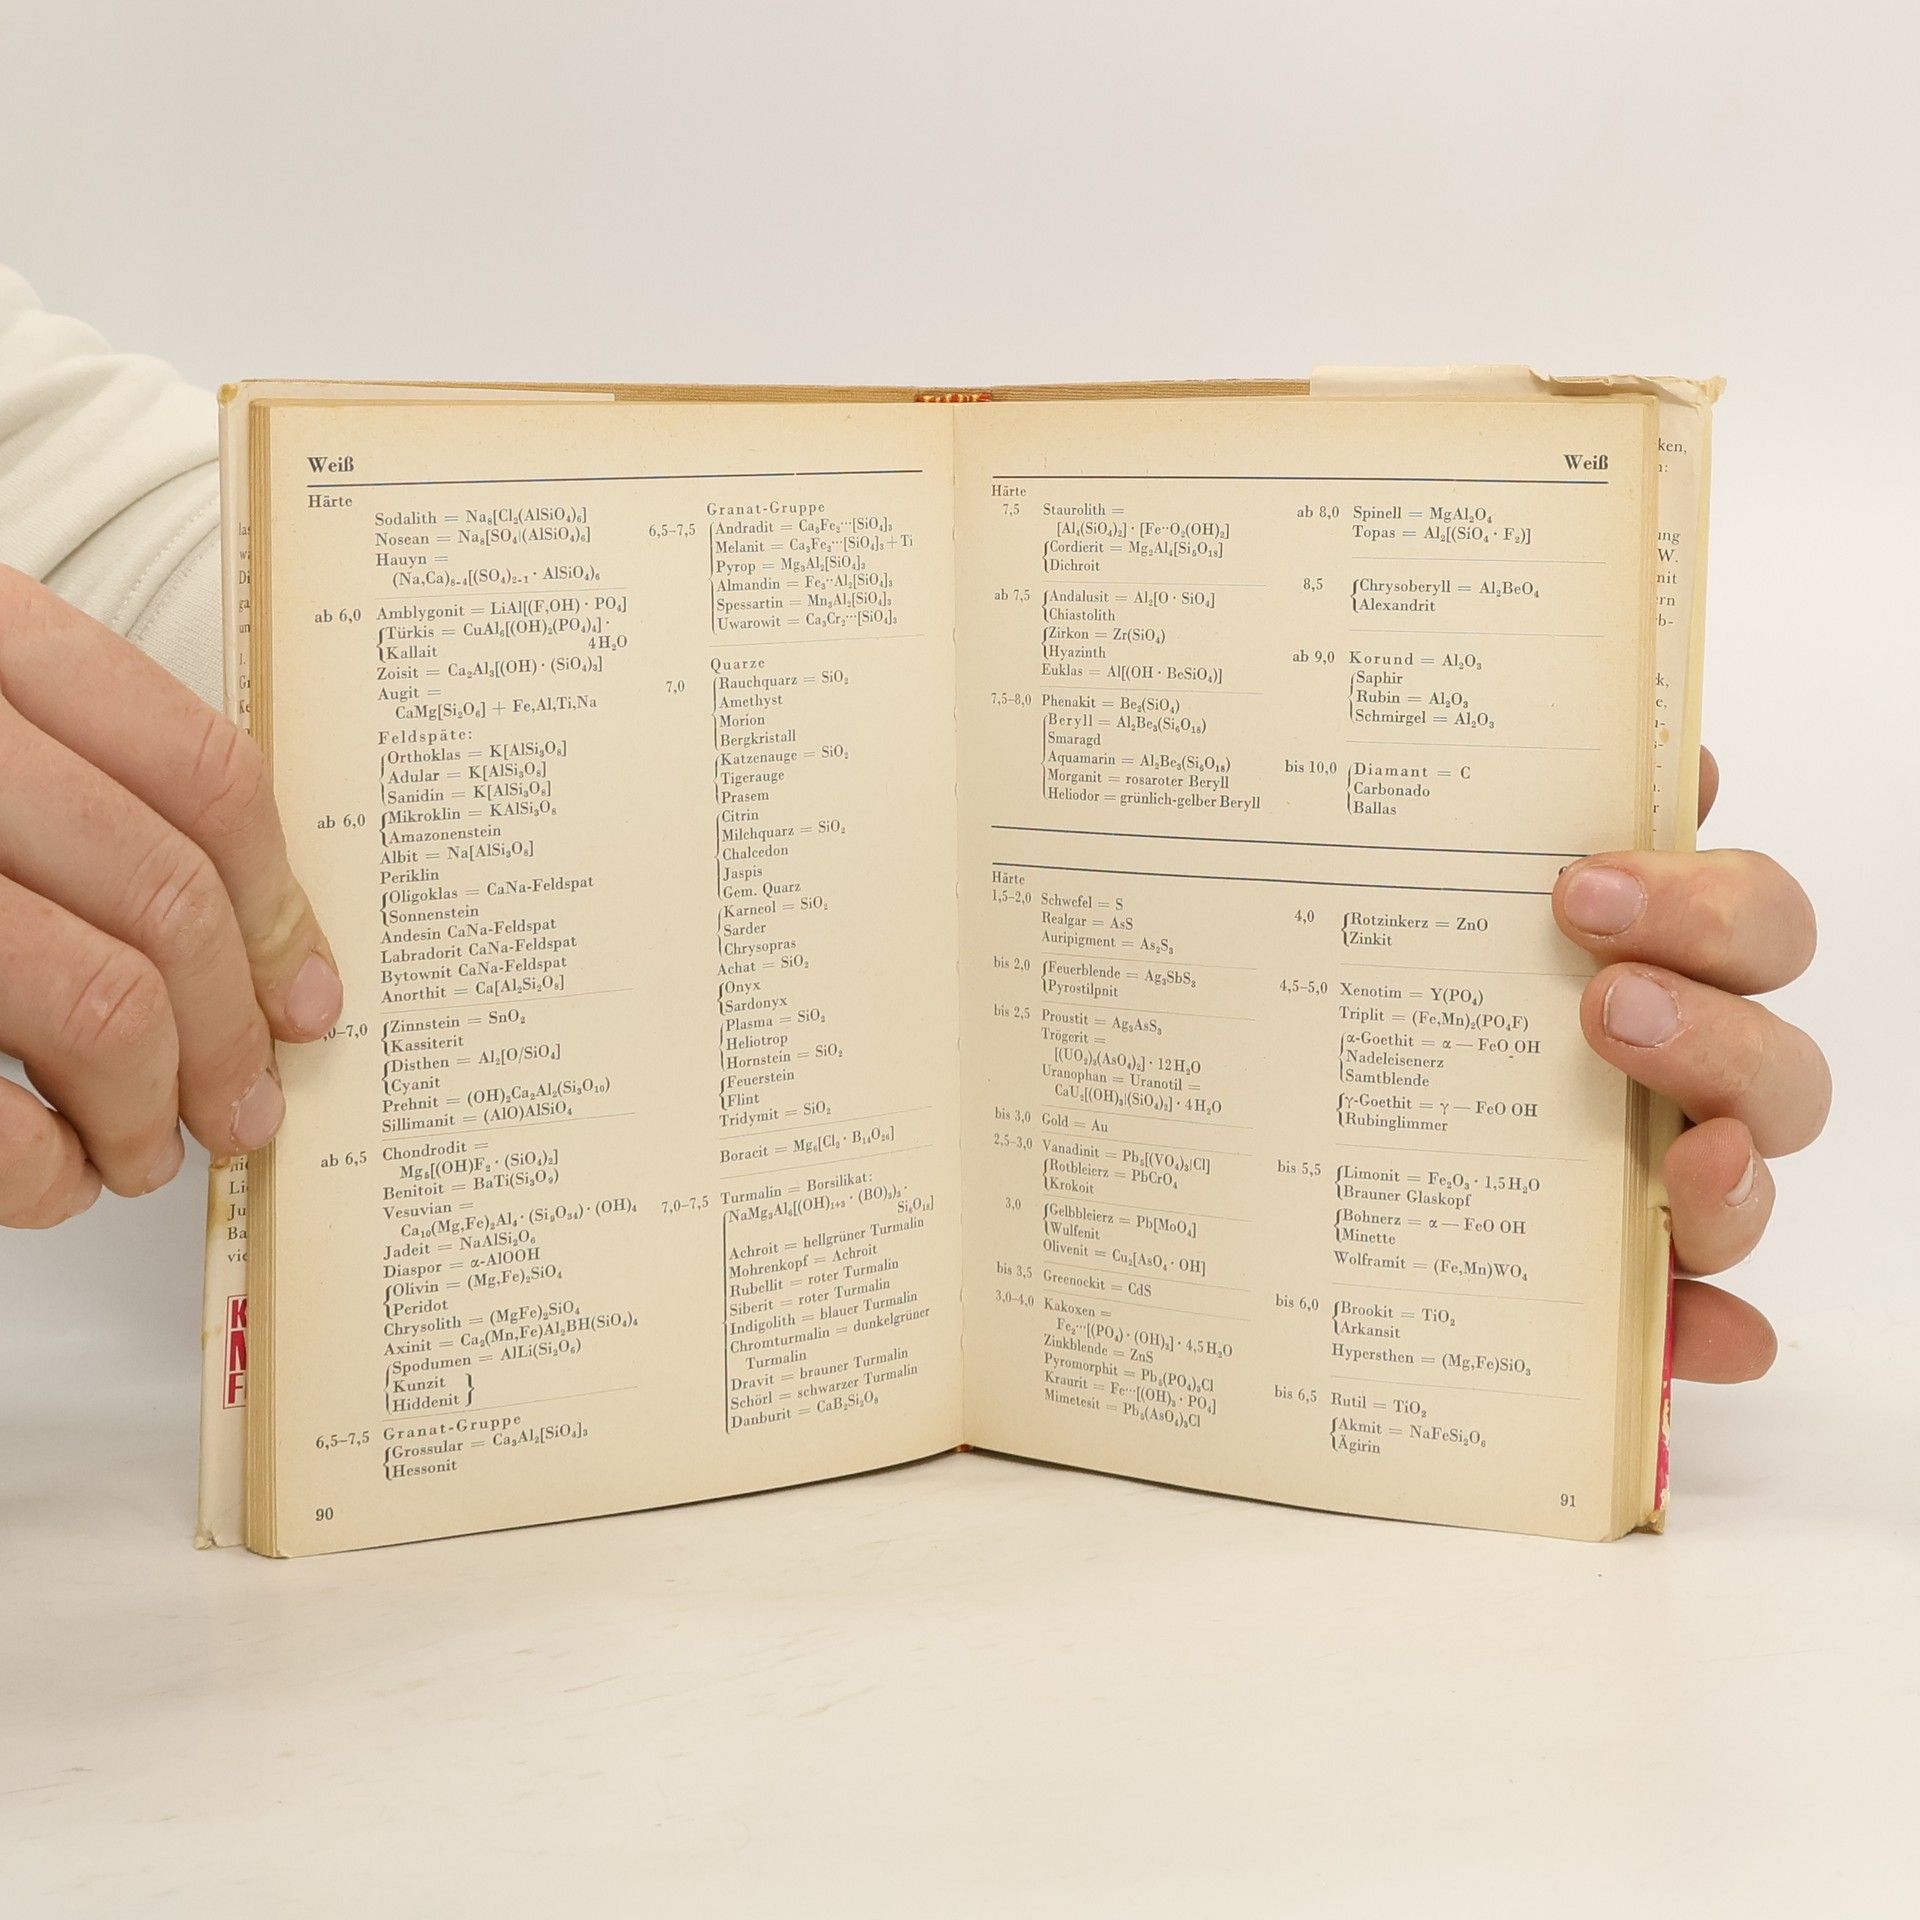 Weiß
Härte
Sodalith = Na₈[Cl₂(AlSiO₄)₆]
Nosean = Na₈[SO₄|(AlSiO₄)₆]
Hauyn =
(Na,Ca)₈₋₄[(SO₄)₂₋₁ · AlSiO₄)₆
ab 6,0 Amblygonit = LiAl[(F,OH) · PO₄]
Türkis = CuAl₆[(OH)₂(PO₄)₄] ·
Kallait 4H₂O
Zoisit = Ca₂Al₃[(OH) · (SiO₄)₃]
Augit =
CaMg[Si₂O₆] + Fe,Al,Ti,Na
Feldspäte:
Orthoklas = K[AlSi₃O₈]
Adular = K[AlSi₃O₈]
Sanidin = K[AlSi₃O₈]
ab 6,0 Mikroklin = KAlSi₃O₈
Amazonenstein
Albit = Na[AlSi₃O₈]
Periklin
Oligoklas = CaNa-Feldspat
Sonnenstein
Andesin CaNa-Feldspat
Labradorit CaNa-Feldspat
Bytownit CaNa-Feldspat
Anorthit = Ca[Al₂Si₂O₈]
,0–7,0 Zinnstein = SnO₂
Kassiterit
Disthen = Al₂[O/SiO₄]
Cyanit
Prehnit = (OH)₂Ca₂Al₂(Si₃O₁₀)
Sillimanit = (AlO)AlSiO₄
ab 6,5 Chondrodit =
Mg₅[(OH)F₂ · (SiO₄)₂]
Benitoit = BaTi(Si₃O₉)
Vesuvian =
Ca₁₀(Mg,Fe)₂Al₄ · (Si₉O₃₄) · (OH)₄
Jadeit = NaAlSi₂O₆
Diaspor = α-AlOOH
Olivin = (Mg,Fe)₂SiO₄
Peridot
Chrysolith = (MgFe)₂SiO₄
Axinit = Ca₂(Mn,Fe)Al₂BH(SiO₄)₄
Spodumen = AlLi(Si₂O₆)
Kunzit
Hiddenit
6,5–7,5 Granat-Gruppe
Grossular = Ca₃Al₂[SiO₄]₃
Hessonit
90
Granat-Gruppe
6,5–7,5 Andradit = Ca₃Fe₂···[SiO₄]₃
Melanit = Ca₃Fe₂···[SiO₄]₃+Ti
Pyrop = Mg₃Al₂[SiO₄]₃
Almandin = Fe₃··Al₂[SiO₄]₃
Spessartin = Mn₃Al₂[SiO₄]₃
Uwarowit = Ca₃Cr₂···[SiO₄]₃
Quarze
7,0 Rauchquarz = SiO₂
Amethyst
Morion
Bergkristall
Katzenauge = SiO₂
Tigerauge
Prasem
Citrin
Milchquarz = SiO₂
Chalcedon
Jaspis
Gem. Quarz
Karneol = SiO₂
Sarder
Chrysopras
Achat = SiO₂
Onyx
Sardonyx
Plasma = SiO₂
Heliotrop
Hornstein = SiO₂
Feuerstein
Flint
Tridymit = SiO₂
Boracit = Mg₆[Cl₂ · B₁₄O₂₆]
7,0–7,5 Turmalin = Borsilikat:
NaMg₃Al₆[(OH)₁₊₃ · (BO)₃)₃ ·
Si₆O₁₈]
Achroit = hellgrüner Turmalin
Mohrenkopf = Achroit
Rubellit = roter Turmalin
Siberit = roter Turmalin
Indigolith = blauer Turmalin
Chromturmalin = dunkelgrüner
Turmalin
Dravit = brauner Turmalin
Schörl = schwarzer Turmalin
Danburit = CaB₂Si₂O₈
Weiß
Härte
7,5 Staurolith =
[Al₄(SiO₄)₂] · [Fe··O₂(OH)₂]
Cordierit = Mg₂Al₄[Si₅O₁₈]
Dichroit
ab 7,5 Andalusit = Al₂[O · SiO₄]
Chiastolith
Zirkon = Zr(SiO₄)
Hyazinth
Euklas = Al[(OH · BeSiO₄)]
7,5–8,0 Phenakit = Be₂(SiO₄)
Beryll = Al₂Be₃(Si₆O₁₈)
Smaragd
Aquamarin = Al₂Be₃(Si₆O₁₈)
Morganit = rosaroter Beryll
Heliodor = grünlich-gelber Beryll
ab 8,0 Spinell = MgAl₂O₄
Topas = Al₂[(SiO₄ · F₂)]
8,5 Chrysoberyll = Al₂BeO₄
Alexandrit
ab 9,0 Korund = Al₂O₃
Saphir
Rubin = Al₂O₃
Schmirgel = Al₂O₃
bis 10,0 Diamant = C
Carbonado
Ballas
Härte
1,5–2,0 Schwefel = S
Realgar = AsS
Auripigment = As₂S₃
bis 2,0 Feuerblende = Ag₃SbS₃
Pyrostilpnit
bis 2,5 Proustit = Ag₃AsS₃
Trögerit =
[(UO₂)₃(AsO₄)₂] · 12H₂O
Uranophan = Uranotil =
CaU₂[(OH)₃|(SiO₄)₂] · 4H₂O
bis 3,0 Gold = Au
2,5–3,0 Vanadinit = Pb₅[(VO₄)₃|Cl]
Rotbleierz = PbCrO₄
Krokoit
3,0 Gelbbleierz = Pb[MoO₄]
Wulfenit
Olivenit = Cu₂[AsO₄ · OH]
bis 3,5 Greenockit = CdS
3,0–4,0 Kakoxen =
Fe₂···[(PO₄) · (OH)₃] · 4,5H₂O
Zinkblende = ZnS
Pyromorphit = Pb₅(PO₄)₃Cl
Kraurit = Fe···[(OH)₃ · PO₄]
Mimetesit = Pb₅(AsO₄)₃Cl
4,0 Rotzinkerz = ZnO
Zinkit
4,5–5,0 Xenotim = Y(PO₄)
Triplit = (Fe,Mn)₂(PO₄F)
α-Goethit = α — FeO OH
Nadeleisenerz
Samtblende
γ-Goethit = γ — FeO OH
Rubinglimmer
bis 5,5 Limonit = Fe₂O₃ · 1,5H₂O
Brauner Glaskopf
Bohnerz = α — FeO OH
Minette
Wolframit = (Fe,Mn)WO₄
bis 6,0 Brookit = TiO₂
Arkansit
Hypersthen = (Mg,Fe)SiO₃
bis 6,5 Rutil = TiO₂
Akmit = NaFeSi₂O₆
Ägirin
91